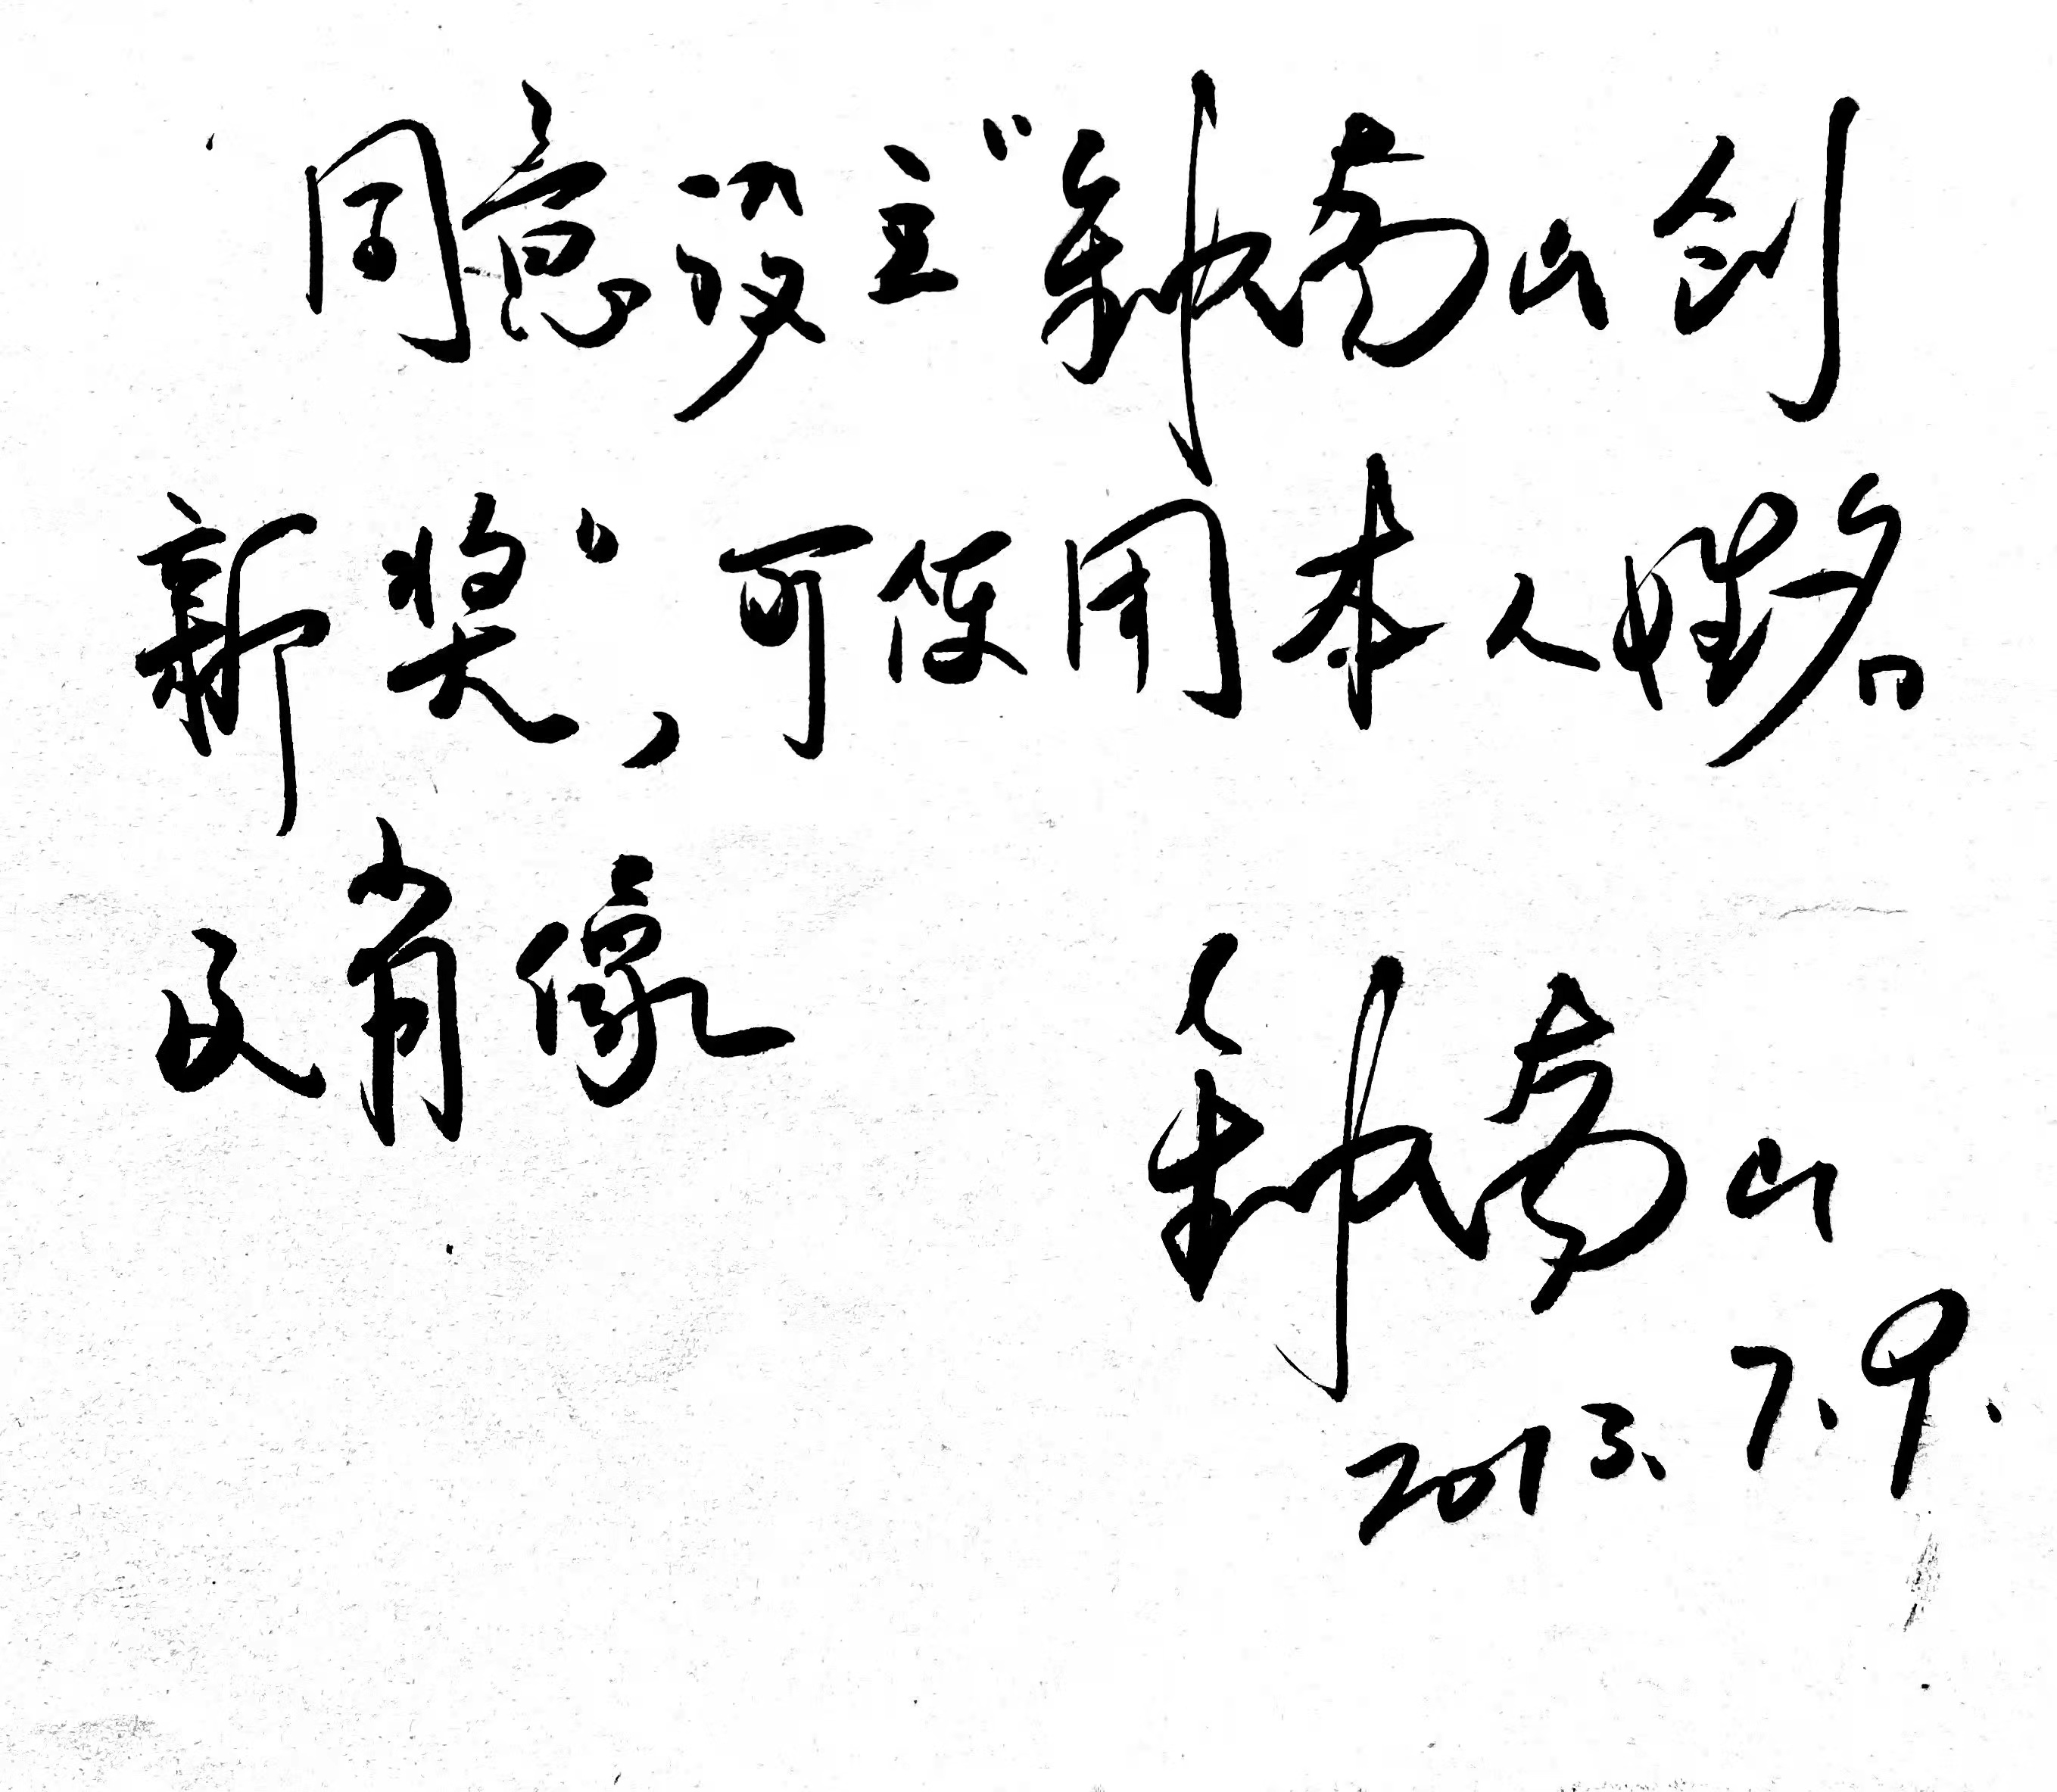 同意设立“钟南山创
新奖”，可使用本人姓名
及肖像
钟南山
2013.7.9.